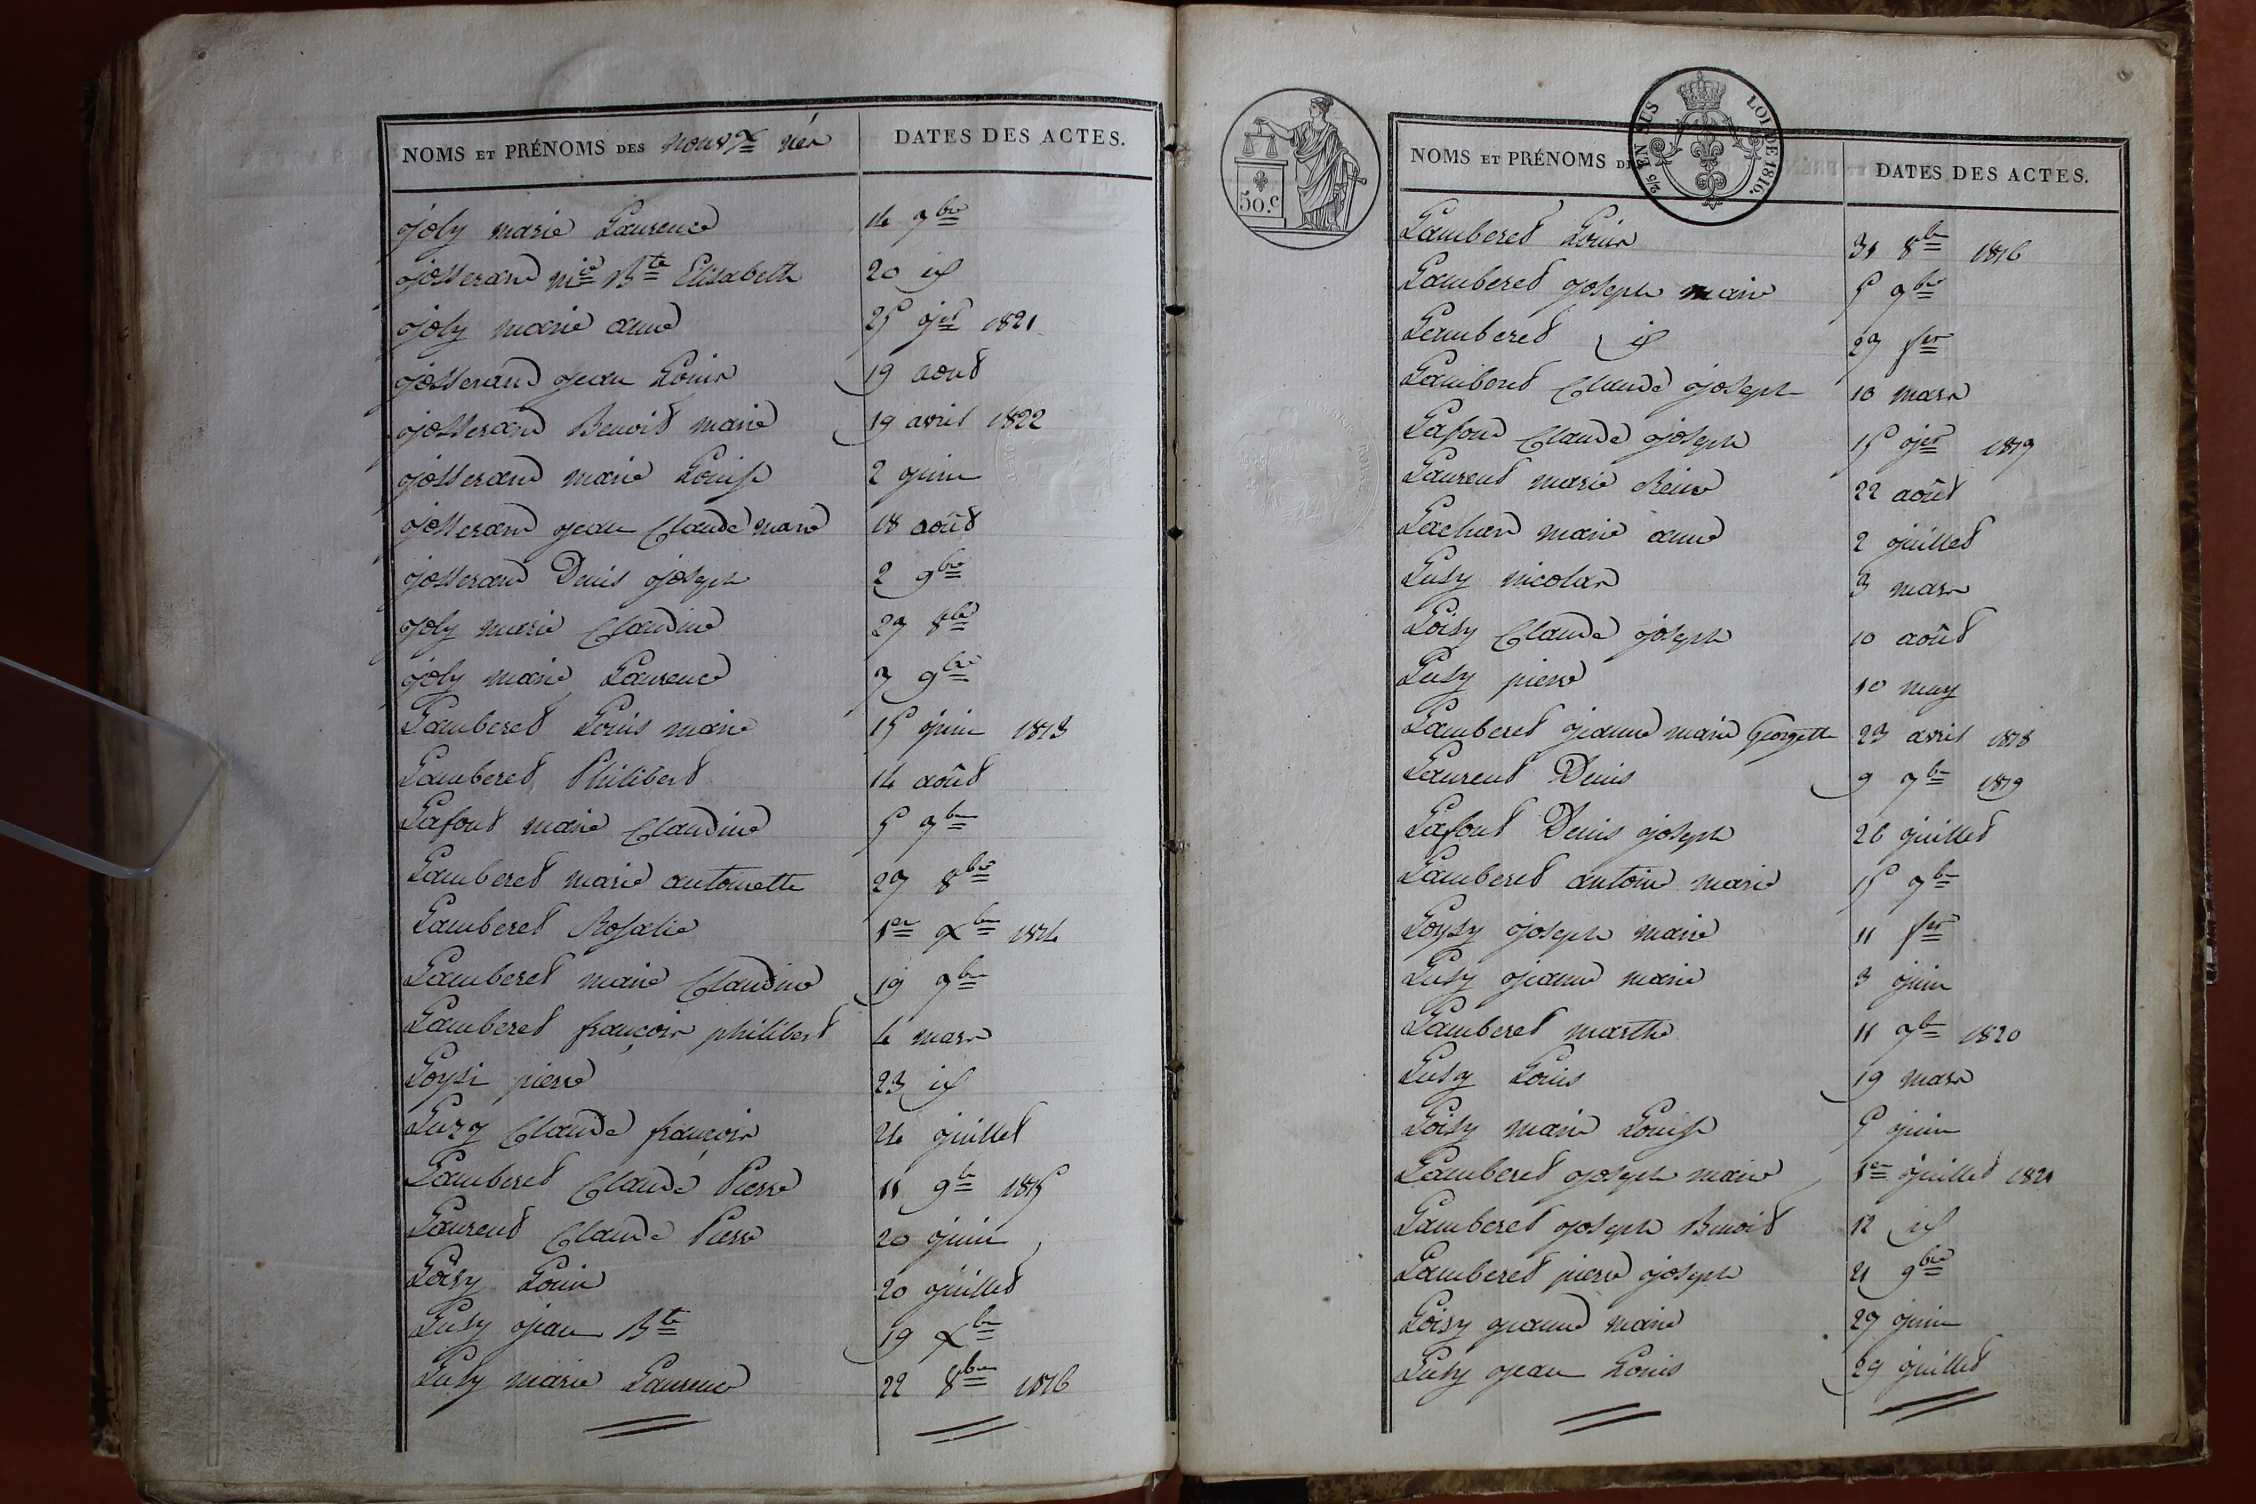 NOMS ET PRÉNOMS DES nouvx nés DATES DES ACTES.
joly marie Laurence 14 7bre
josserand mie Bte Elisabeth 20 id
joly marie anne 25 jer 1821
josserand jean Louis 19 aout
josserand Benoit marie 19 avril 1822
josserand marie Louise 2 juin
josserand jean Claude marie 18 août
josserand Denis joseph 2 9bre
joly marie Claudine 27 8bre
joly marie Laurence 7 9bre
Lamberet Louis marie 15 juin 1813
Lamberet Philibert 14 août
Lafont marie Claudine 5 7bre
Lamberet marie antoinette 27 8bre
Lamberet Rosalie 1er Xbre 1814
Lamberet marie Claudine 19 7bre
Lamberet françois philibert 4 mars
Loysi pierre 23 id
Luzy Claude françois 24 juillet
Lamberet Claude Pierre 11 9bre 1815
Laurent Claude Pierre 20 juin
Loisy Louis 20 juillet
Lusy jean Bte 19 Xbre
Lusy marie Laurence 22 8bre 1816
50.c
2/5 EN SUS LOI DE 1816.
NOMS ET PRÉNOMS DATES DES ACTES.
Lamberet Louis 31 8bre 1816
Lamberet joseph marie 5 9bre
Lamberet id 27 fer
Lamberet Claude joseph 10 mars
Lafond Claude joseph 15 jer 1817
Laurent marie Reine 22 août
Lachard marie anne 2 juillet
Lusy nicolas 3 mars
Loisy Claude joseph 10 août
Lusy pierre 10 may
Lamberet jeanne marie Georgette 23 avril 1818
Laurent Denis 9 7bre 1819
Lafont Denis joseph 26 juillet
Lamberet antoine marie 15 7bre
Loysy joseph marie 11 fer
Lusy jeanne marie 3 juin
Lamberet marthe 11 7bre 1820
Lusy Louis 19 mars
Loisy marie Louise 5 juin
Lamberet joseph marie 1er juillet 1821
Lamberet joseph Benoit 12 id
Lamberet pierre joseph 21 9bre
Loisy jeanne marie 27 juin
Lusy jean Louis 29 juillet